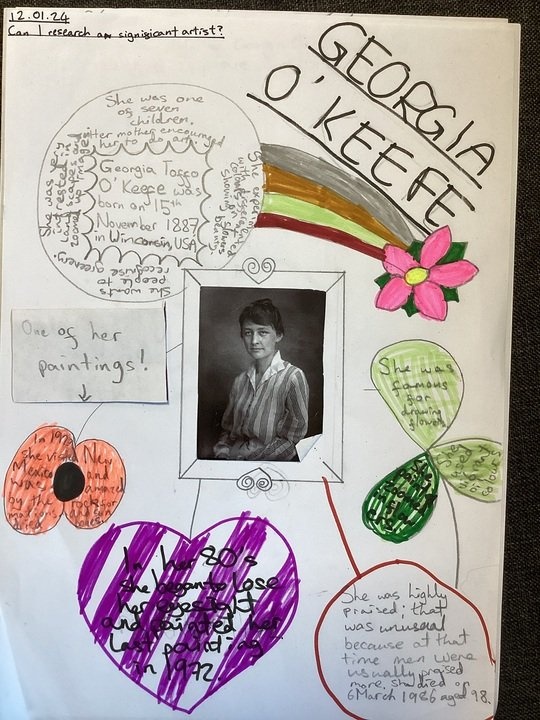 12.01.24
Can I research an significant artist?
GEORGIA
O'KEEFE
She was one
of seven
children.
her mother encouraged
her to do art.
Georgia Togo
O'Keefe was
born on 15th
November 1887
in Winconsin, USA
She wants
people to
recognise greenery.
She was
interested in
landscapes and
zoomed up images
One of her
paintings!
She was
famous
for
drawing
flowers
In
she visited New
Mexico and
was
by the rock for
In her 80's
she began to lose
her eyesight
and painted her
last painting
in 1972
She was highly
praised; that
was unusual
because at that
time men were
usually praised
more. She died on
6 March 1986 aged 98.